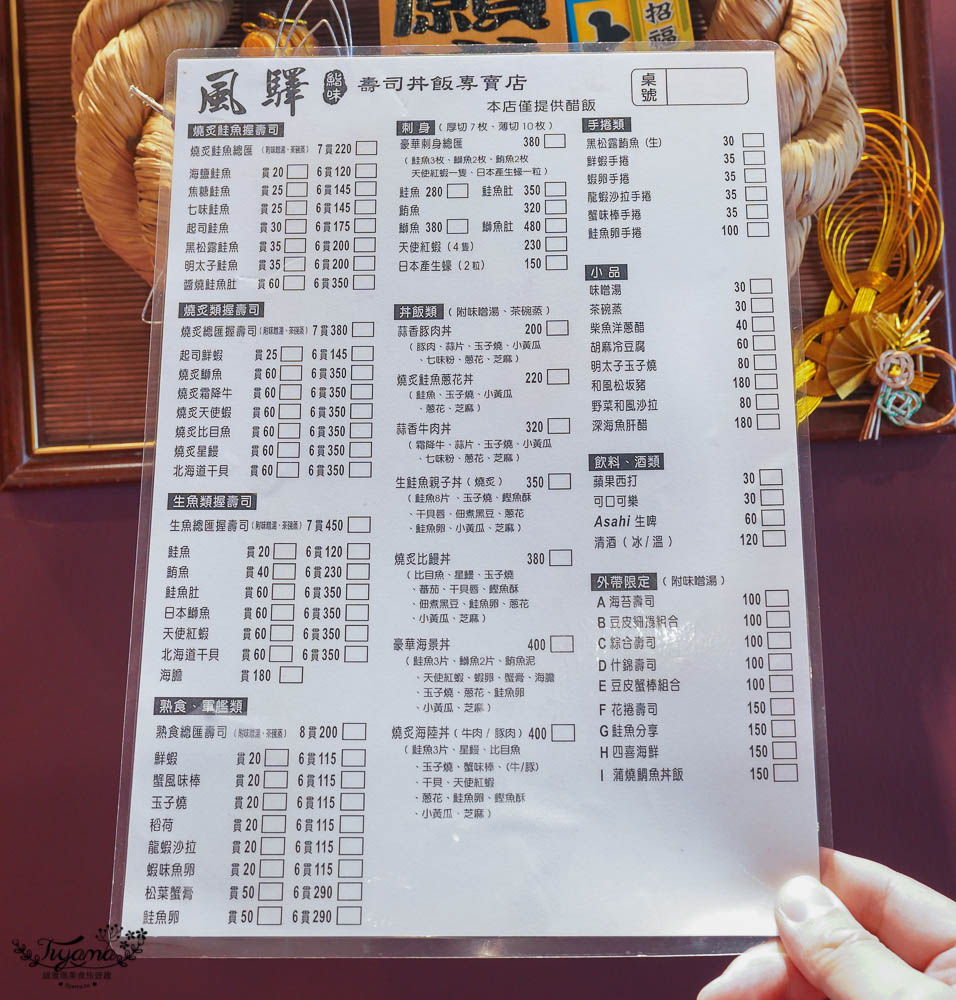 招福
風驛
鮨味
壽司丼飯專賣店
本店僅提供醋飯
桌號
燒炙鮭魚握壽司
燒炙鮭魚總匯 (附味噌湯、茶碗蒸) 7貫220
海鹽鮭魚 貫20 6貫120
焦糖鮭魚 貫25 6貫145
七味鮭魚 貫25 6貫145
起司鮭魚 貫30 6貫175
黑松露鮭魚 貫35 6貫200
明太子鮭魚 貫35 6貫200
醬燒鮭魚肚 貫60 6貫350
燒炙類握壽司
燒炙總匯握壽司 (附味噌湯、茶碗蒸) 7貫380
起司鮮蝦 貫25 6貫145
燒炙鰤魚 貫60 6貫350
燒炙霜降牛 貫60 6貫350
燒炙天使蝦 貫60 6貫350
燒炙比目魚 貫60 6貫350
燒炙星鰻 貫60 6貫350
北海道干貝 貫60 6貫350
生魚類握壽司
生魚總匯握壽司 (附味噌湯、茶碗蒸) 7貫450
鮭魚 貫20 6貫120
鮪魚 貫40 6貫230
鮭魚肚 貫60 6貫350
日本鰤魚 貫60 6貫350
天使紅蝦 貫60 6貫350
北海道干貝 貫60 6貫350
海膽 貫180
熟食、軍艦類
熟食總匯壽司 (附味噌湯、茶碗蒸) 8貫200
鮮蝦 貫20 6貫115
蟹風味棒 貫20 6貫115
玉子燒 貫20 6貫115
稻荷 貫20 6貫115
龍蝦沙拉 貫20 6貫115
蝦味魚卵 貫20 6貫115
松葉蟹膏 貫50 6貫290
鮭魚卵 貫50 6貫290
刺身 (厚切7枚、薄切10枚)
豪華刺身總匯 380
(鮭魚3枚、鰤魚2枚、鮪魚2枚
天使紅蝦一隻、日本產生蠔一粒)
鮭魚 280 鮭魚肚 350
鮪魚 320
鰤魚 380 鰤魚肚 480
天使紅蝦 (4隻) 230
日本產生蠔 (2粒) 150
丼飯類 (附味噌湯、茶碗蒸)
蒜香豚肉丼 200
(豚肉、蒜片、玉子燒、小黃瓜
、七味粉、蔥花、芝麻)
燒炙鮭魚蔥花丼 220
(鮭魚、玉子燒、小黃瓜
、蔥花、芝麻)
蒜香牛肉丼 320
(霜降牛、蒜片、玉子燒、小黃瓜
、七味粉、蔥花、芝麻)
生鮭魚親子丼 (燒炙) 350
(鮭魚8片、玉子燒、鰹魚酥
、干貝唇、佃煮黑豆、蔥花
、鮭魚卵、小黃瓜、芝麻)
燒炙比鰻丼 380
(比目魚、星鰻、玉子燒
、蕃茄、干貝唇、鰹魚酥
、佃煮黑豆、鮭魚卵、蔥花
、小黃瓜、芝麻)
豪華海景丼 400
(鮭魚3片、鰤魚2片、鮪魚泥
、天使紅蝦、蝦卵、蟹膏、海膽
、玉子燒、蔥花、鮭魚卵
、小黃瓜、芝麻)
燒炙海陸丼 (牛肉/豚肉) 400
(鮭魚3片、星鰻、比目魚
、玉子燒、蟹味棒、(牛/豚)
、干貝、天使紅蝦
、蔥花、鮭魚卵、鰹魚酥
、小黃瓜、芝麻)
手捲類
黑松露鮪魚 (生) 30
鮮蝦手捲 35
蝦卵手捲 35
龍蝦沙拉手捲 35
蟹味棒手捲 35
鮭魚卵手捲 100
小品
味噌湯 30
茶碗蒸 30
柴魚洋蔥醋 40
胡麻冷豆腐 60
明太子玉子燒 80
和風松坂豬 180
野菜和風沙拉 80
深海魚肝醋 180
飲料、酒類
蘋果西打 30
可口可樂 30
Asahi 生啤 60
清酒 (冰/溫) 120
外帶限定 (附味噌湯)
A 海苔壽司 100
B 豆皮細捲組合 100
C 綜合壽司 100
D 什錦壽司 100
E 豆皮蟹棒組合 100
F 花捲壽司 150
G 鮭魚分享 150
H 四喜海鮮 150
I 蒲燒鯛魚丼飯 150
Tiyama